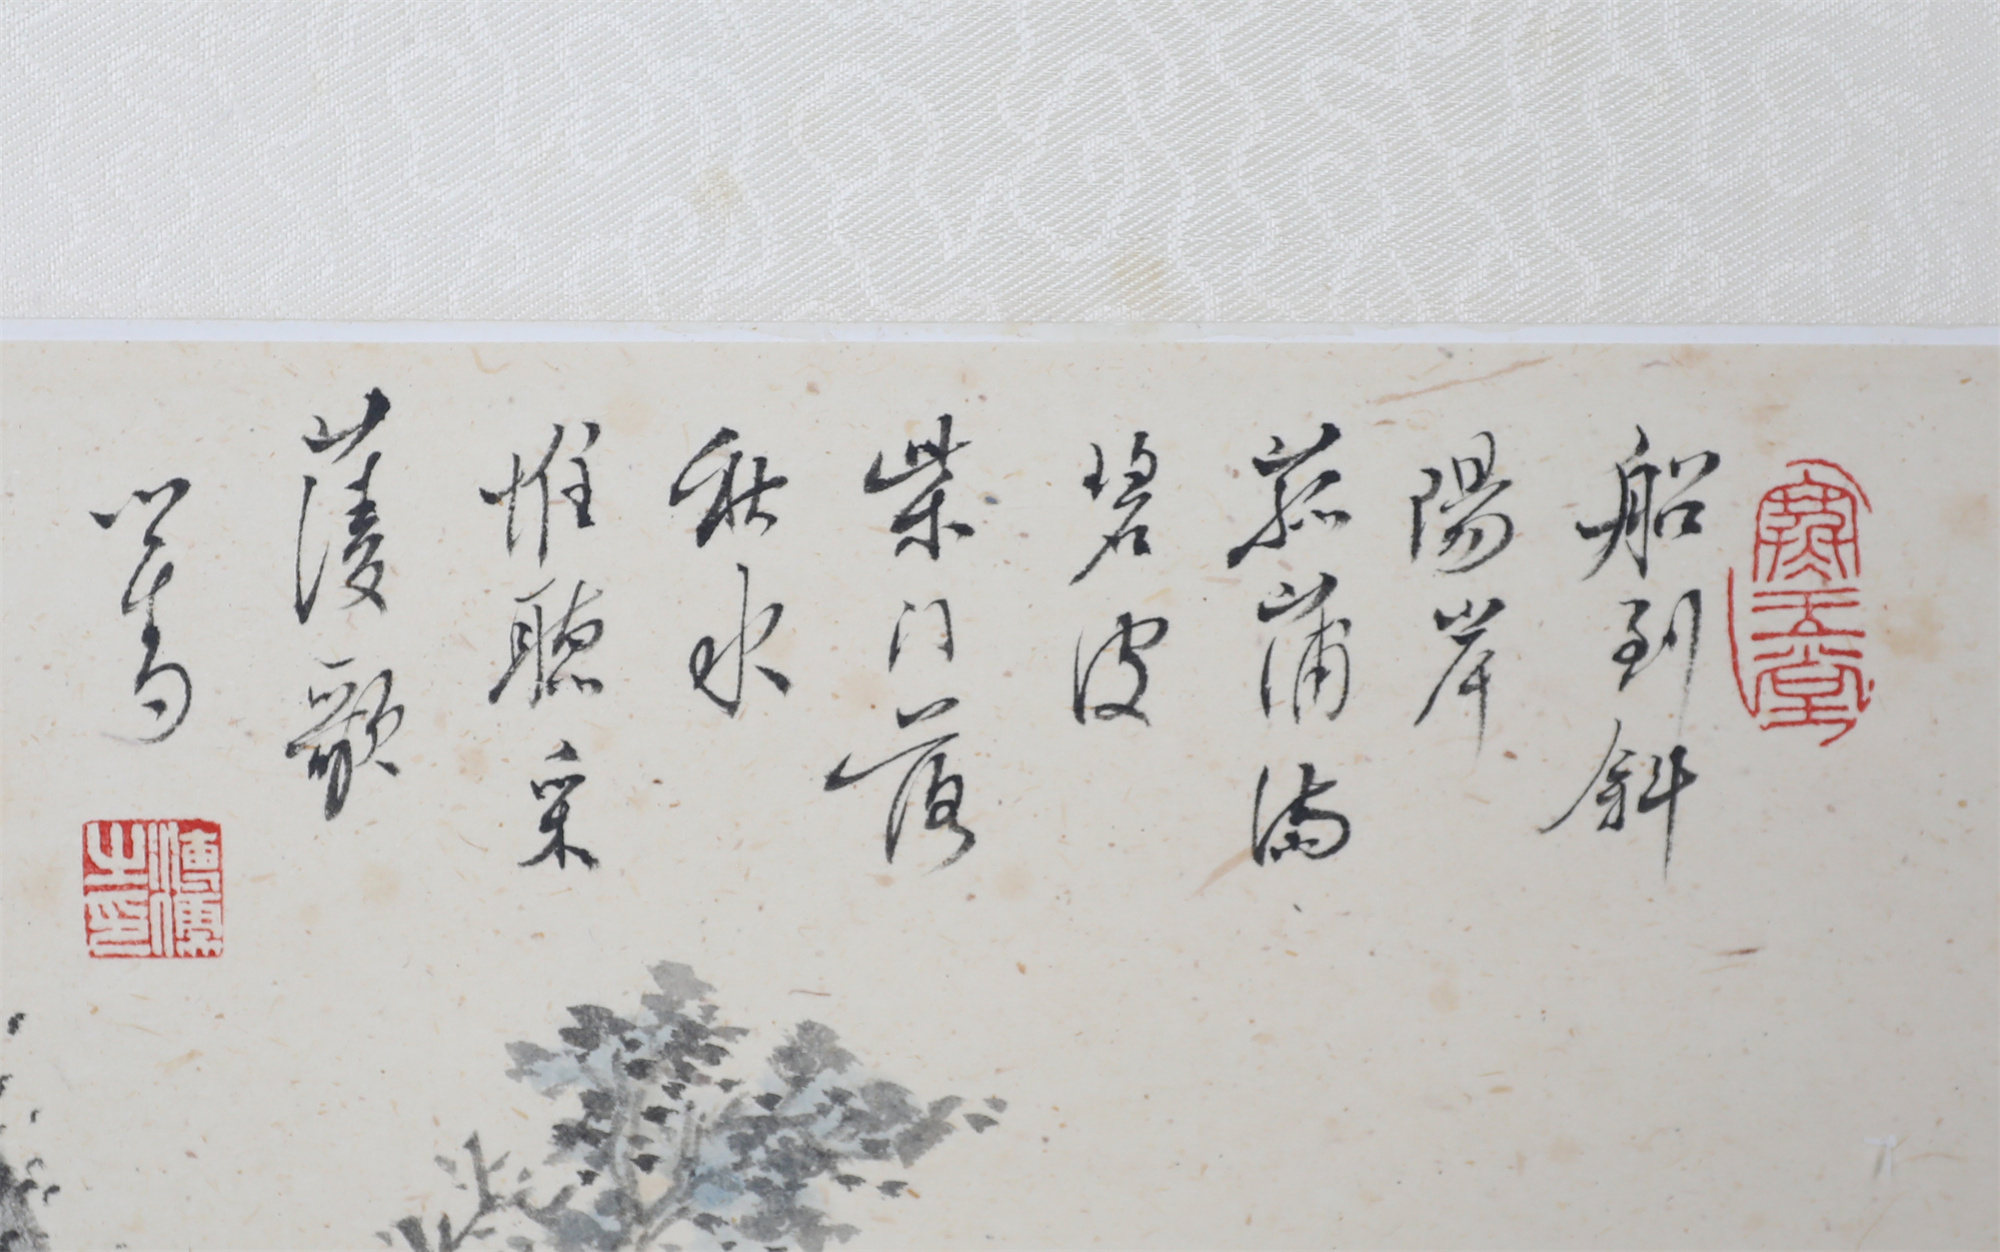 船到斜
陽岸
菰蒲滿
碧波
柴门落
秋水
惟聽采
菱歌
心畬
溥儒之印